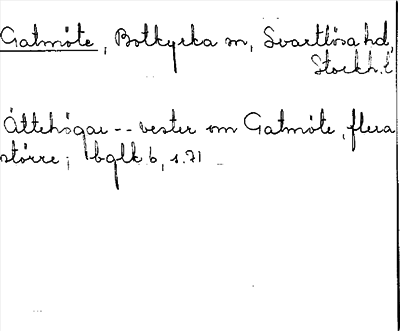 Gatmöte, Botkyrka sn, Svartlösa hd,
Stockh. l
Ättehögar -- vester om Gatmöte, flera
större; bglk 6, s. 71